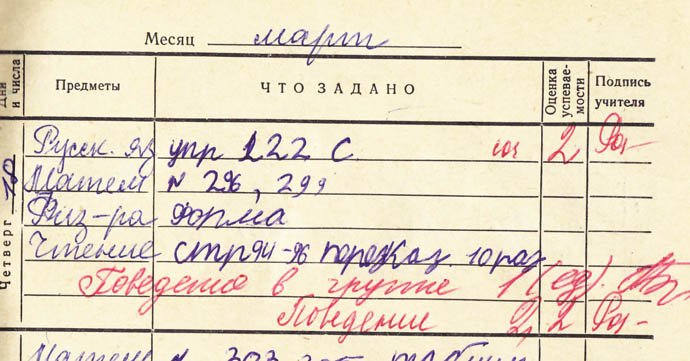 Месяц март
Дни и числа
Предметы
ЧТО ЗАДАНО
Оценка успеваемости
Подпись учителя
Четверг 18
Русск. яз упр 122 с. 2
Матем N 296, 299
Физ-ра форма
Чтение стр 94-96 10 раз
Поведение в группе 1 (ед).
Поведение 2, 2
Матем N 303